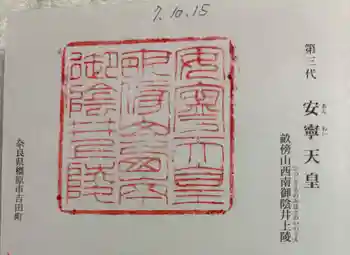 7.10.15
第三代
安寧天皇
あん ねい
畝傍山西南御陰井上陵
安寧天皇
畝傍山西南
御陰井上陵
奈良県橿原市吉田町